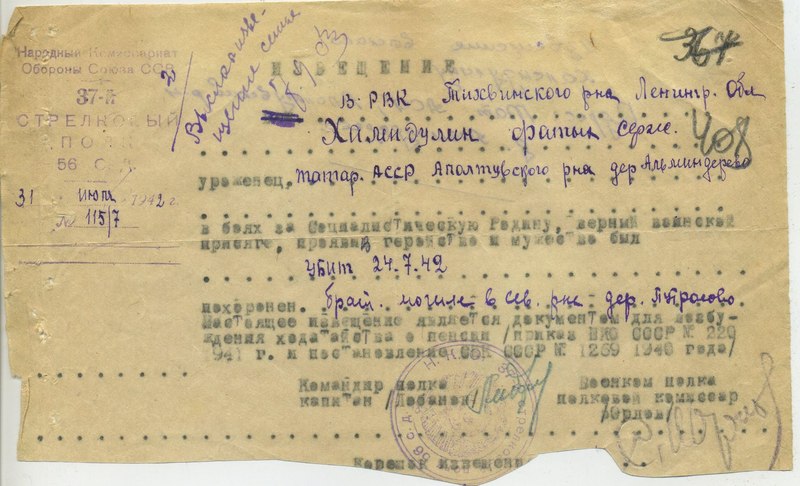 Народный Комиссариат
Обороны Союза ССР
37-й
СТРЕЛКОВЫЙ
ПОЛК
56 С.Д.
31 июля 1942 г.
№ 115/7
367
408
ИЗВЕЩЕНИЕ
В РВК Тихвинского р-на Ленингр. Обл
Хамидулин Фатых серж.
уроженец, татар. АССР Апастувского р-на дер Альминдерево
в боях за Социалистическую Родину, верный воинской
присяге, проявив геройство и мужество был
убит 24.7.42
похоронен. брат. могиле в сев. р-не дер.
Настоящее извещение является документом для возбу-
ждения ходатайства о пенсии /приказ НКО СССР № 220
1941 г. и постановление СНК СССР № 1269 1940 года/
Командир полка
капитан /Лобанов/
Военком полка
полковой комиссар
/Орлов/
Корешок извещения